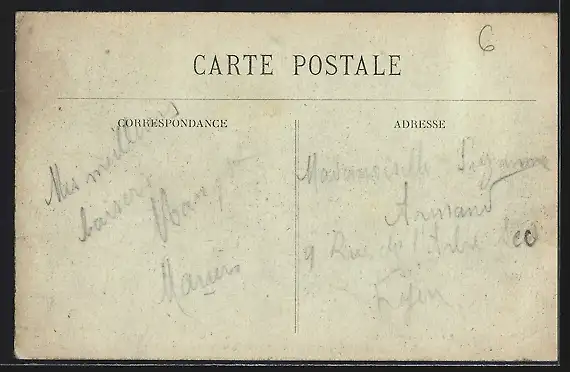 6
CARTE POSTALE
CORRESPONDANCE
ADRESSE
Mes meilleurs
baisers
Mademoiselle
Armand
9 Rue de l'Arbre Sec
Lyon